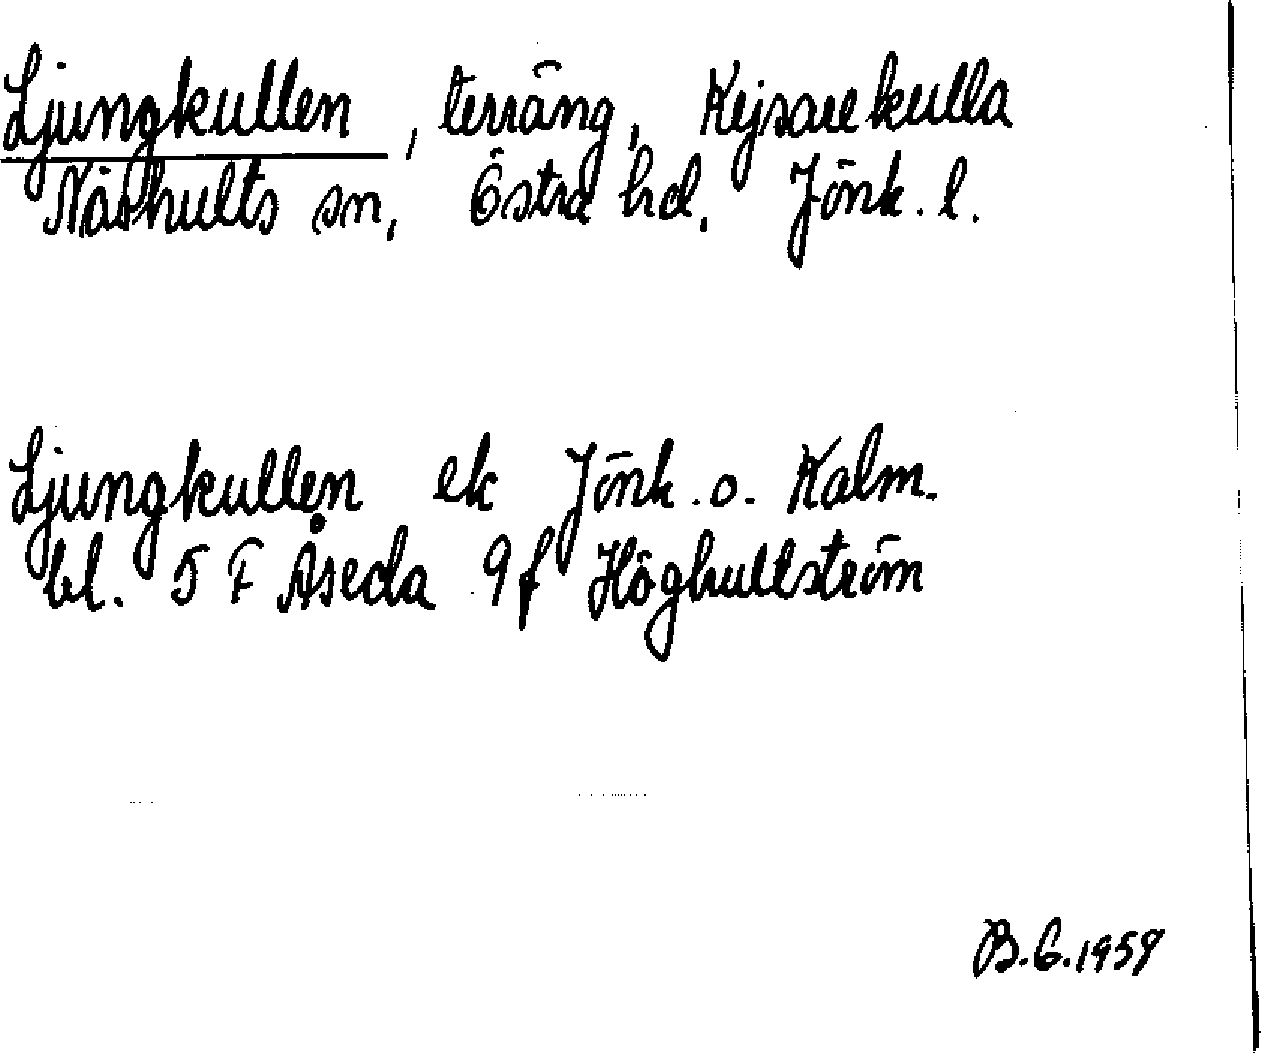 Ljungkullen, terräng, Kejsarekulla
Näshults sn, Östra hd. Jönk. l.
Ljungkullen ek Jönk. o. Kalm.
bl. 5 F Åseda 9 f Höghultström
B. G. 1959